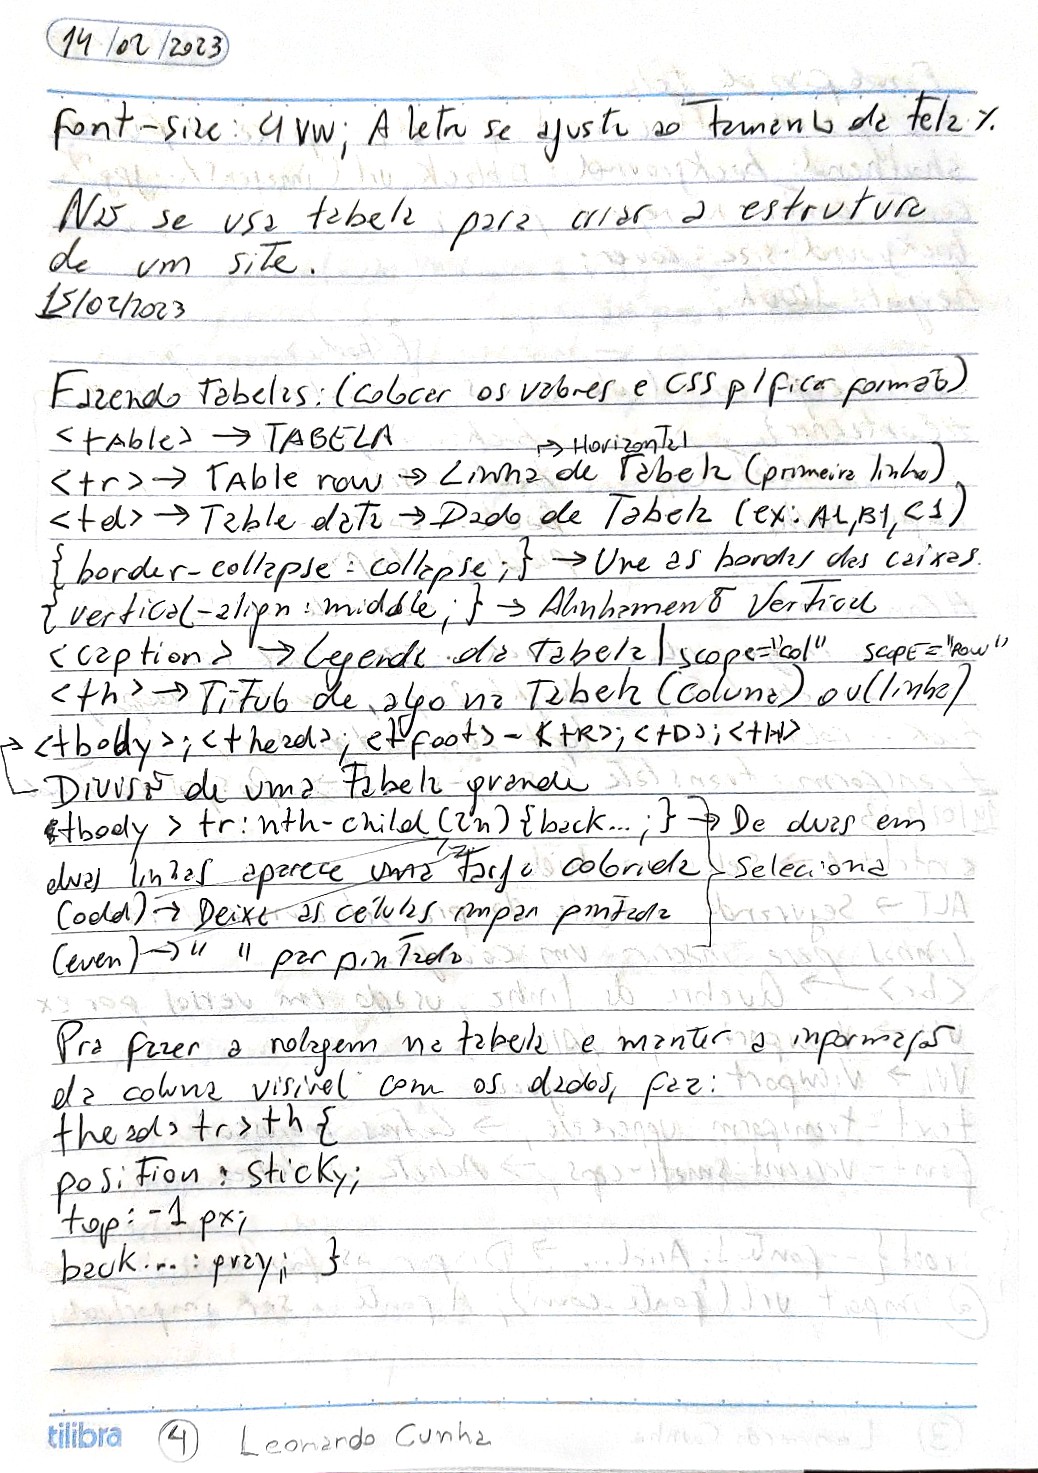 14/02/2023
font-size: 4vw; A letra se ajusta ao tamanho da tela %.
Não se usa tabela para criar a estrutura
de um site.
15/02/2023
Fazendo Tabelas: (colocar os valores e CSS p/ ficar formato)
<tAble> → TABELA
→ Horizontal
<tr> → TAble row → Linha de Tabela (primeira linha)
<td> → Table data → Dado de Tabela (ex: A1, B1, C1)
{border-collapse: collapse;} → Une as bordas das caixas.
{vertical-align: middle;} → Alinhamento Vertical
<caption> → Legenda da Tabela | scope="col" scopE="Row"
<th> → Título de algo na Tabela (coluna) ou (linha)
<tbody>; <thead>; <tfoot> - <tR>; <tD>; <tH>
Divisão de uma Tabela grande
tbody > tr:nth-child(2n) {back...;} → De duas em
duas linhas aparece uma faixa colorida Seleciona
(odd) → Deixa as células impar pintada
(even) → " " par pintada
Pra fazer a rolagem na tabela e manter a informação
da coluna visível com os dados, faz:
thead> tr> th {
position: sticky;
top: -1px;
back...: gray; }
tilibra 4 Leonardo Cunha